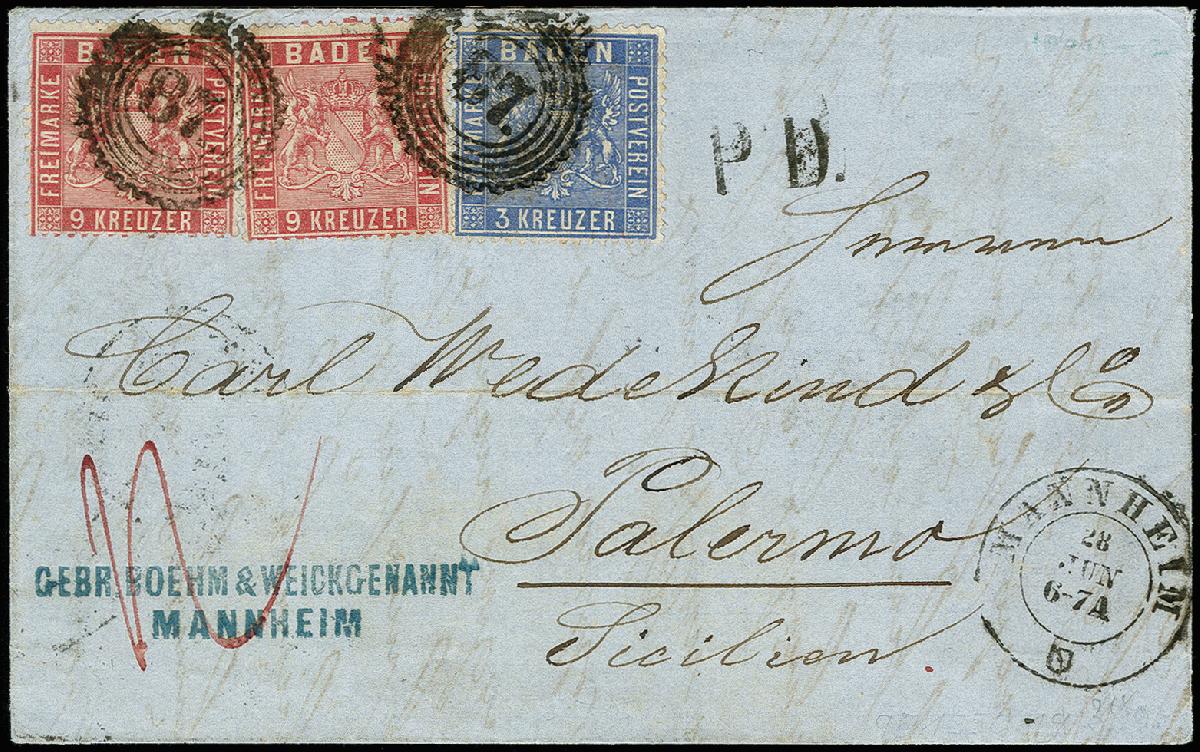 BADEN
FREIMARKE
POSTVEREIN
9 KREUZER
87
BADEN
FREIMARKE
9 KREUZER
BADEN
POSTVEREIN
3 KREUZER
87.
P.D.
Carl Wedekind & Co
Palermo
Sicilien.
GEBR. BOEHM & WEICKGENANNT
MANNHEIM
MANNHEIM
28
JUN
6-7A